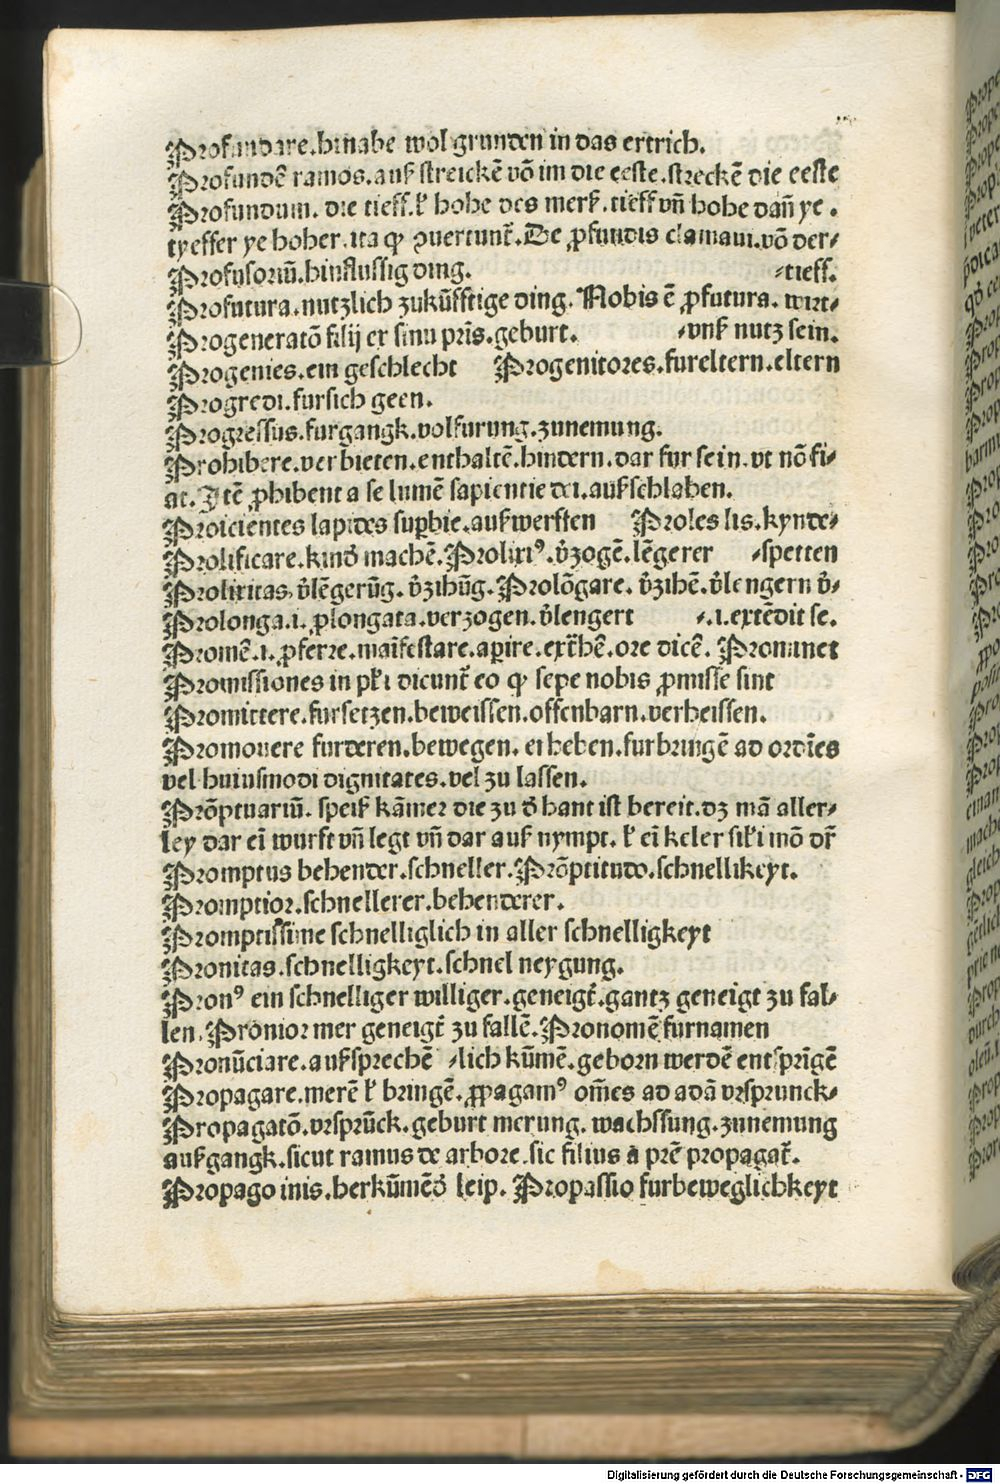 Profundare.hinabe wol grunden in das ertrich.
Profundē ramos.auß streickē vō im die eeste.streckē die eeste
Profundum. die tieff.ł hohe des merß.tieff vn̄ hohe dan̄ ye.
tyeffer ye hoher.ita ꝙ ꝯuertunt̄.De ꝓfundis clamaui.vō der⸗
Profusoriū.hinflussig ding. ⸗tieff.
Profutura.nutzlich zukūfftige ding. Nobis ē ꝓfutura. wirt⸗
Progeneratō filij ex sinu pr̄is.geburt. ⸗vnß nutz sein.
Progenies.ein geschlecht Progenitores.fureltern.eltern
Progredi.fursich geen.
Progressus.furgangk.volfurung.zunemung.
Prohibere.verbieten.enthaltē.hindern.dar fur sein.vt nō fi⸗
at. Itē ꝓhibent a se lumē sapientie dei.aufschlahen.
Proicientes lapides suꝑbie.aufwerffen Proles lis.kynde⸗
Prolificare.kind̄ machē.Prolixiꝰ.v̄zogē.lēgerer ⸗spetten
Prolixitas.v̄lēgerūg.v̄zihūg.Prolōgare. v̄zihē.v̄lengern v̄⸗
Prolonga.i. ꝓlongata.verzogen.v̄lengert ⸗.i.extēdit se.
Promē.i. ꝓferre.manifestare.aꝑire.ext̄hē.ore dicē. Prominet
Promissiones in płi dicunt̄ eo ꝙ sepe nobis ꝓmisse sint
Promittere.fursetzen.beweissen.offenbarn.verheissen.
Promouere furderen.bewegen. erheben.furbringē ad ordīes
vel huiusmodi dignitates.vel zu lassen.
Prōptuariū. speiß kāmer die zu d̄ hant ist bereit.dz mā aller⸗
ley dar eī wurft vn̄ legt vn̄ dar auß nympt. ł eī keler siłi mō dr̄
Promptus behender.schneller.Prōptitudo.schnellikeyt.
Promptior.schnellerer.behenderer.
Promptissime schnelliglich in aller schnelligkeyt
Pronitas.schnelligkeyt.schnel neygung.
Pronꝰ ein schnelliger williger.geneigt̄.gantz geneigt zu fal⸗
len. Pronior mer geneigt̄ zu fallē.Pronomē furnamen
Pronūciare.außsprechē ⸗lich kūmē.geborn werdē entsprīgē
Propagare.merē ł bringē.ꝓpagamꝰ om̄es ad adā vrsprunck⸗
Propagatō.vrsprūck.geburt merung. wachssung.zunemung
aufgangk.sicut ramus de arbore.sic filius ā prē propagat̄.
Propago inis.herkūmēd̄ leip. Propassio furbeweglichkeyt
Digitalisierung gefördert durch die Deutsche Forschungsgemeinschaft - DFG